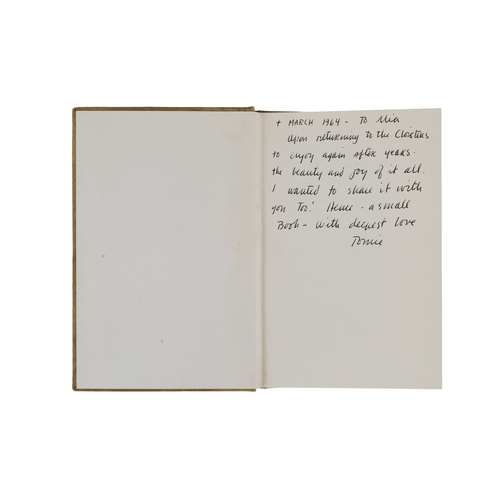 + MARCH 1964 - To Mia
Upon returning to the Cloisters
to enjoy again after years.
the beauty and joy of it all.
I wanted to share it with
you too! Hence - a small
Book - with deepest love
Tomie